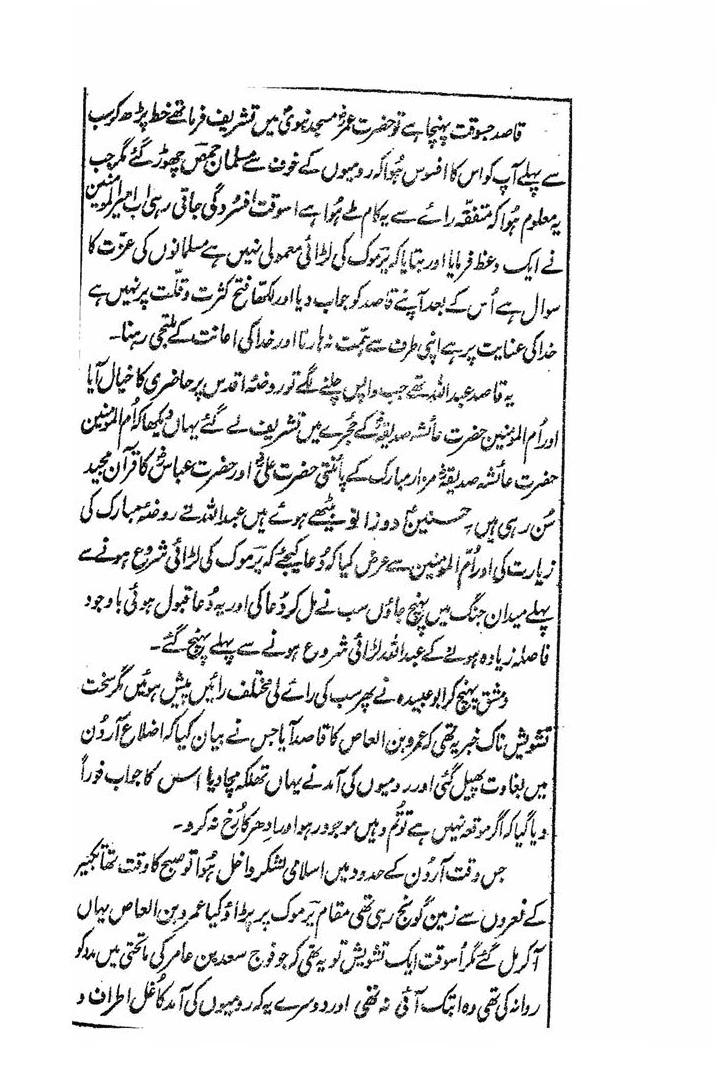 قاصد جسوقت پہنچا ہے تو حضرت عمرؓ مسجد نبوی میں تشریف فرما تھے خط پڑھ کر سب
سے پہلے آپ کو اس کا افسوس ہُوا کہ رومیوں کے خوف سے مسلمان حمص چھوڑ گئے مگر جب
یہ معلوم ہُوا کہ متفقہ رائے سے یہ کام طے ہُوا ہے اسوقت افسردگی جاتی رہی اب امیر المومنین
نے ایک وعظ فرمایا اور بتایا کہ یرموک کی لڑائی معمولی نہیں ہے مسلمانوں کی عزّت کا
سوال ہے اُس کے بعد آپنے قاصد کو جواب دیا اور لکھا فتح کثرت و قلّت پر نہیں ہے
خدا کی عنایت پر ہے اپنی طرف سے ہمّت نہ ہارنا اور خدا کی اعانت کے ملتجی رہنا۔
یہ قاصد عبداللہ تھے جب واپس چلنے لگے تو روضۂ اقدس پر حاضری کا خیال آیا
اور اُم المومنین حضرت عائشہ صدیقہؓ کے حجرے میں تشریف لے گئے یہاں دیکھا کہ اُم المومنین
حضرت عائشہ صدیقہؓ مزار مبارک کے پائنتی حضرت علیؓ اور حضرت عباسؓ کا قرآن مجید
سُن رہی ہیں۔ حسنینؓ دو زانو بیٹھے ہوئے ہیں عبداللہ نے روضۂ مبارک کی
زیارت کی اور اُمّ المومنین سے عرض کیا کہ دُعا کیجئے کہ یرموک کی لڑائی شروع ہونے سے
پہلے میدان جنگ میں پہنچ جاؤں سب نے مل کر دُعا کی اور یہ دُعا قبول ہوئی باوجود
فاصلہ زیادہ ہونے کے عبداللہ لڑائی شروع ہونے سے پہلے پہنچ گئے۔
دمشق پہنچ کر ابو عبیدہ نے پھر سب کی رائے لی مختلف رائیں پیش ہوئیں مگر سخت
تشویش ناک خبر یہ تھی کہ عمرو بن العاص کا قاصد آیا جس نے بیان کیا کہ اضلاع آرڈن
میں بغاوت پھیل گئی اور رومیوں کی آمد نے یہاں تھلکہ مچا دیا اس کا جواب فوراً
دیا گیا کہ اگر موقعہ نہیں ہے تو تُم وہیں موجود رہو اور ادھر کا رُخ نہ کرو۔
جس وقت آرڈن کے حدود میں اسلامی لشکر داخل ہُوا تو صبح کا وقت تھا تکبیر
کے نعروں سے زمین گونج رہی تھی مقام یرموک پر پڑاؤ کیا عمرو بن العاص یہاں
آکر مل گئے مگر اُسوقت ایک تشویش تو یہ تھی کہ جو فوج سعد بن عامر کی ماتحتی میں مدد کو
روانہ کی تھی وہ ابتک آئی نہ تھی اور دوسرے یہ کہ رومیوں کی آمد کا غُل اطراف و